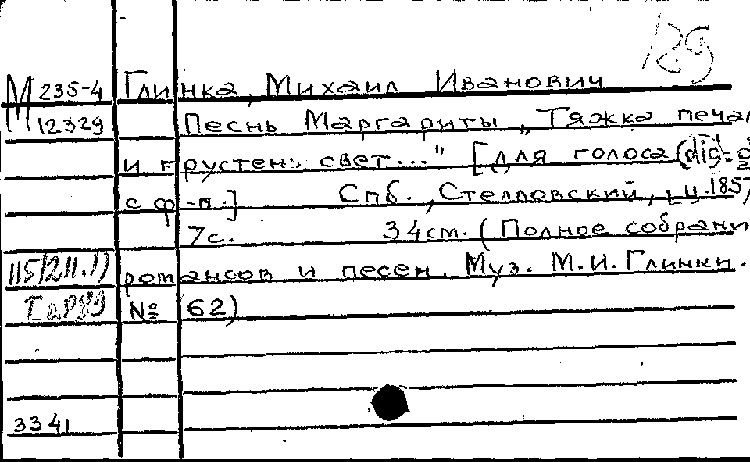 129
М 235-4 Глинка, Михаил Иванович
12329 Песнь Маргариты „Тяжка печал
и грустен свет..." [для голоса (dis¹-
с ф-п.] Спб., Стелловский, ц. 1857
7с. 34см. (Полное собрани
романсов и песен. Муз. М.И. Глинки.
№ 62)
3341